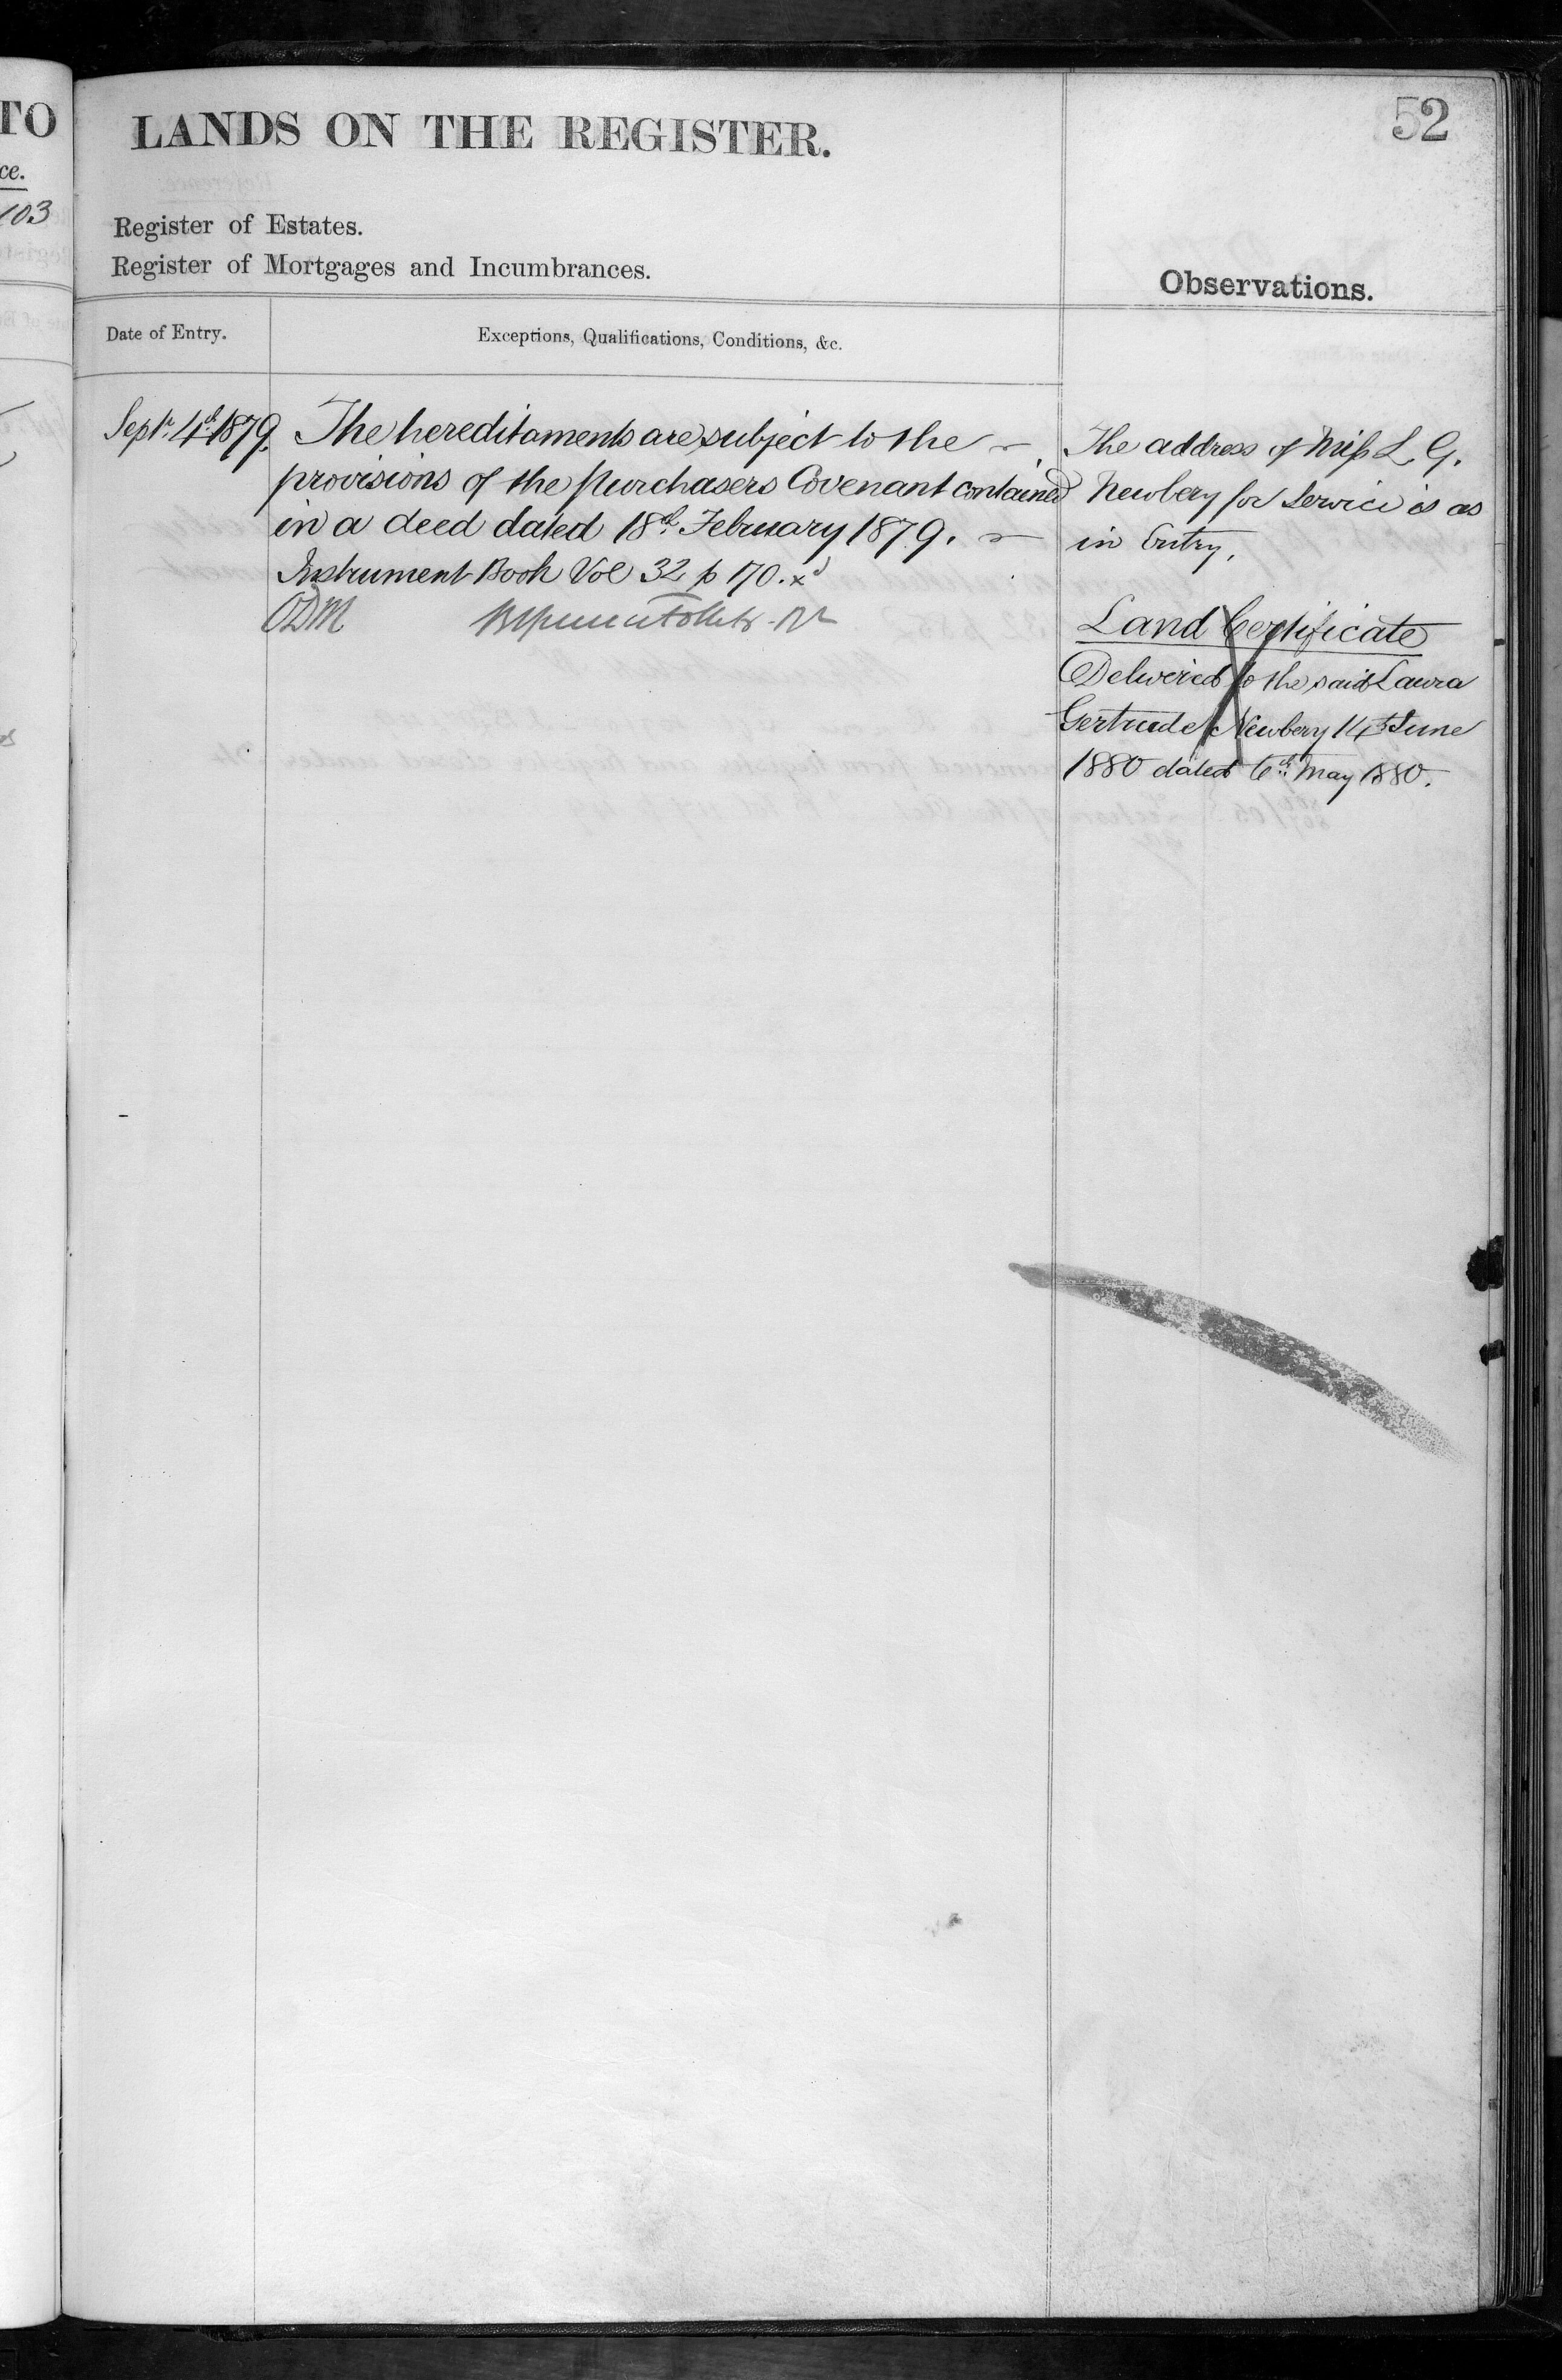 TO
ce.
103
LANDS ON THE REGISTER.
52
Register of Estates.
Register of Mortgages and Incumbrances.
Observations.
Date of Entry.
Exceptions, Qualifications, Conditions, &c.
Septr. 4th 1879.
The hereditaments are subject to the
provisions of the Purchasers Covenant contained
in a deed dated 18th February 1879.
Instrument Book Vol 32 p 170.
The address of Miss L. G.
Newbery for Service is as
in Entry.
Land Certificate
Delivered to the said Laura
Gertrude Newbery 14th June
1880 dated 6th May 1880.